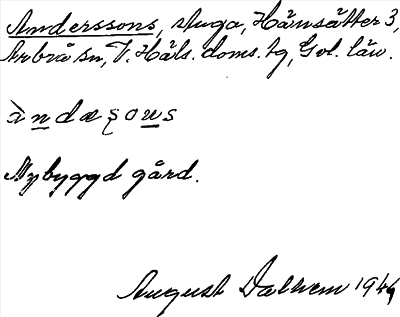 Anderssons, stuga, Hämsätter 3,
Arbrå sn, V. Häls. doms. bg, Gvl. län.
àndæʂons
Nybyggd gård.
August Dalhem 1944